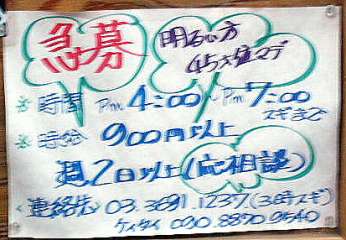 急募 明るい方
45才位マデ
※時間 Pm4:00~Pm7:00
スギまで
※時給 900円以上
週2日以上(応相談)
<連絡先> 03.3691.1237(3時スギ)
ケイタイ 090.8870.9540